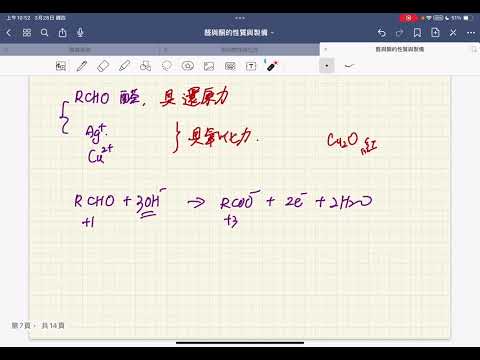 上午10:52 3月28日 週四
51%
醛與酮的性質與製備
醛與酮的性質與製備
RCHO 醛，具還原力
Ag⁺
Cu²⁺
} 具氧化力．
Cu₂O 紅
RCHO + 3OH⁻ → RCOO⁻ + 2e⁻ + 2H₂O
+1 +3
第7頁， 共14頁